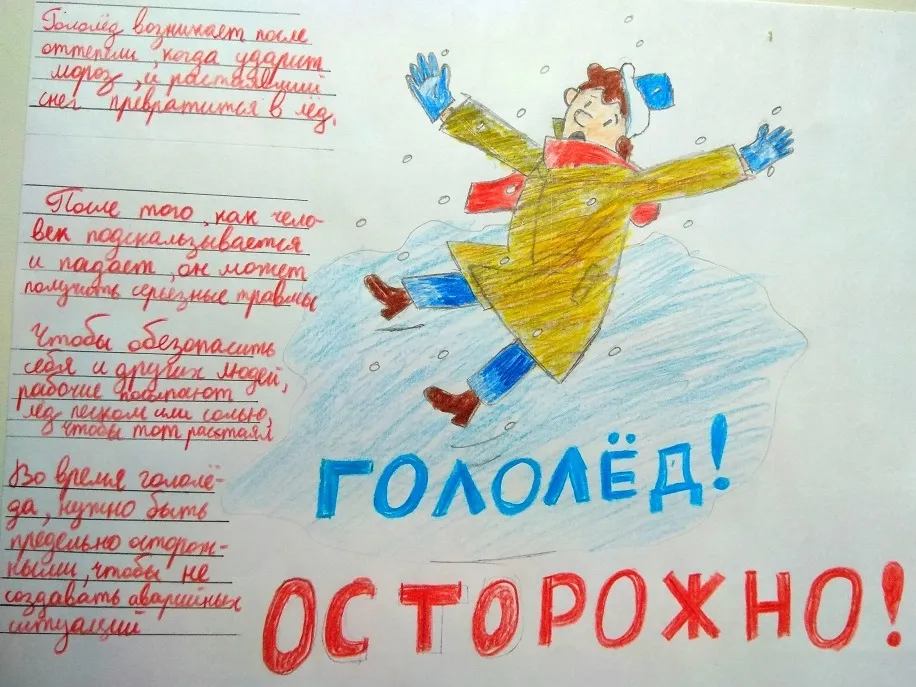 Гололёд возникает после
оттепели, когда ударит
мороз, и растаявший
снег превратится в лёд.
После того, как чело-
век подскальзывается
и падает, он может
получить серьезные травмы
Чтобы обезопасить
себя и других людей,
рабочие посыпают
лёд песком или солью,
чтобы тот расстаял
Во время гололё-
да, нужно быть
предельно осторож-
ными, чтобы не
создавать аварийных
ситуаций
ГОЛОЛЁД!
ОСТОРОЖНО!